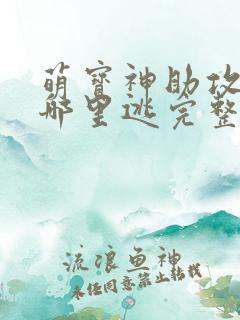 萌宝神助攻
哪里逃完整
流浪鱼神
未经同意禁止转载